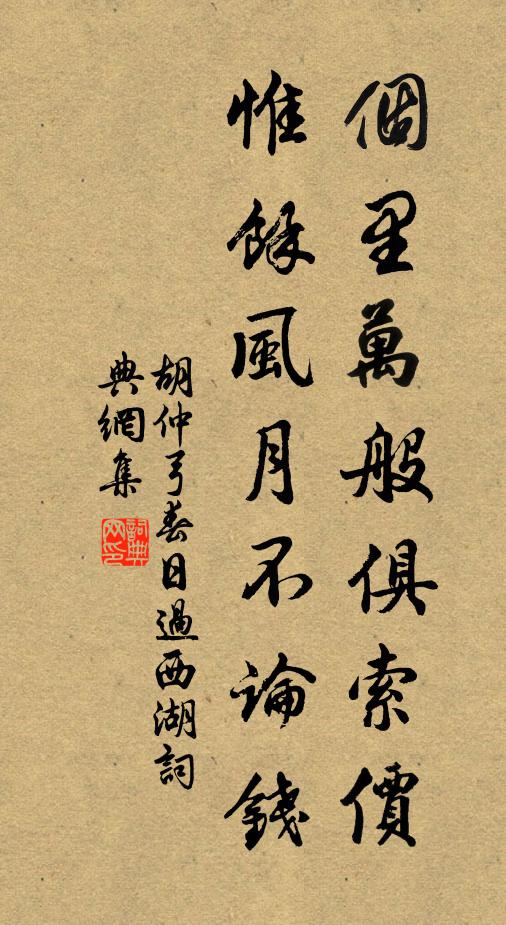 個里萬般俱索價
惟餘風月不論錢
胡仲弓春日過西湖詞
典網集
詞典网印